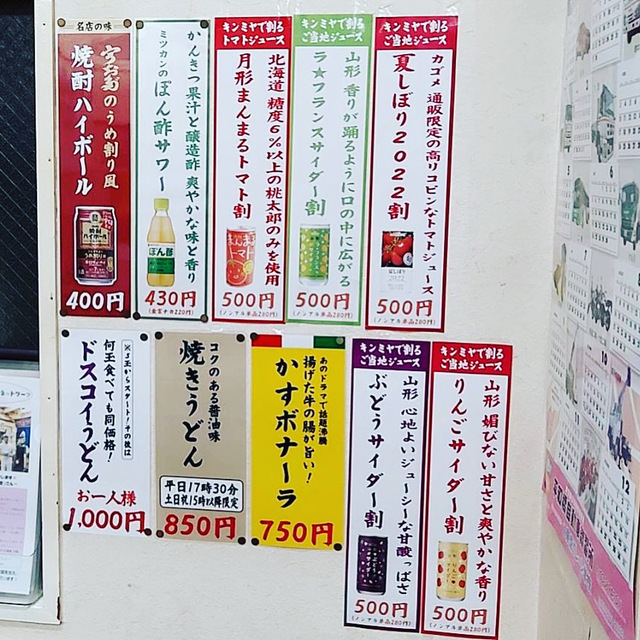 名店の味
宮ちゃんのうめ割り風
焼酎ハイボール
400円
かんきつ果汁と醸造酢 爽やかな味と香り
ミツカンのぽん酢サワー
ぽん酢
430円
キンミヤで割る
トマトジュース
北海道 糖度6%以上の桃太郎のみを使用
月形まんまるトマト割
まんまる
トマト
500円
(ノンアル単品280円)
キンミヤで割る
ご当地ジュース
山形 香りが踊るように口の中に広がる
ラ★フランスサイダー割
500円
(ノンアル単品280円)
キンミヤで割る
ご当地ジュース
カゴメ 通販限定の高リコピンなトマトジュース
夏しぼり2022割
500円
(ノンアル単品280円)
※3玉からスタート!その後は
何玉食べても同価格!
ドスコイうどん
お一人様
1,000円
コクのある醤油味
焼きうどん
平日17時30分
土日祝15時以降限定
850円
あのドラマで話題沸騰
揚げた牛の腸が旨い!
かすボナーラ
750円
キンミヤで割る
ご当地ジュース
山形 心地よいジューシーな甘酸っぱさ
ぶどうサイダー割
500円
(ノンアル単品280円)
キンミヤで割る
ご当地ジュース
山形 媚びない甘さと爽やかな香り
りんごサイダー割
500円
(ノンアル単品280円)